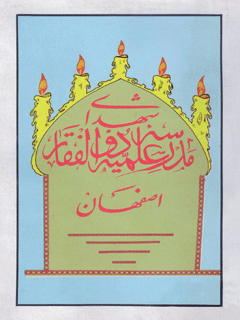 شهدای
مدرسه علمیه ذوالفقار
اصفهان